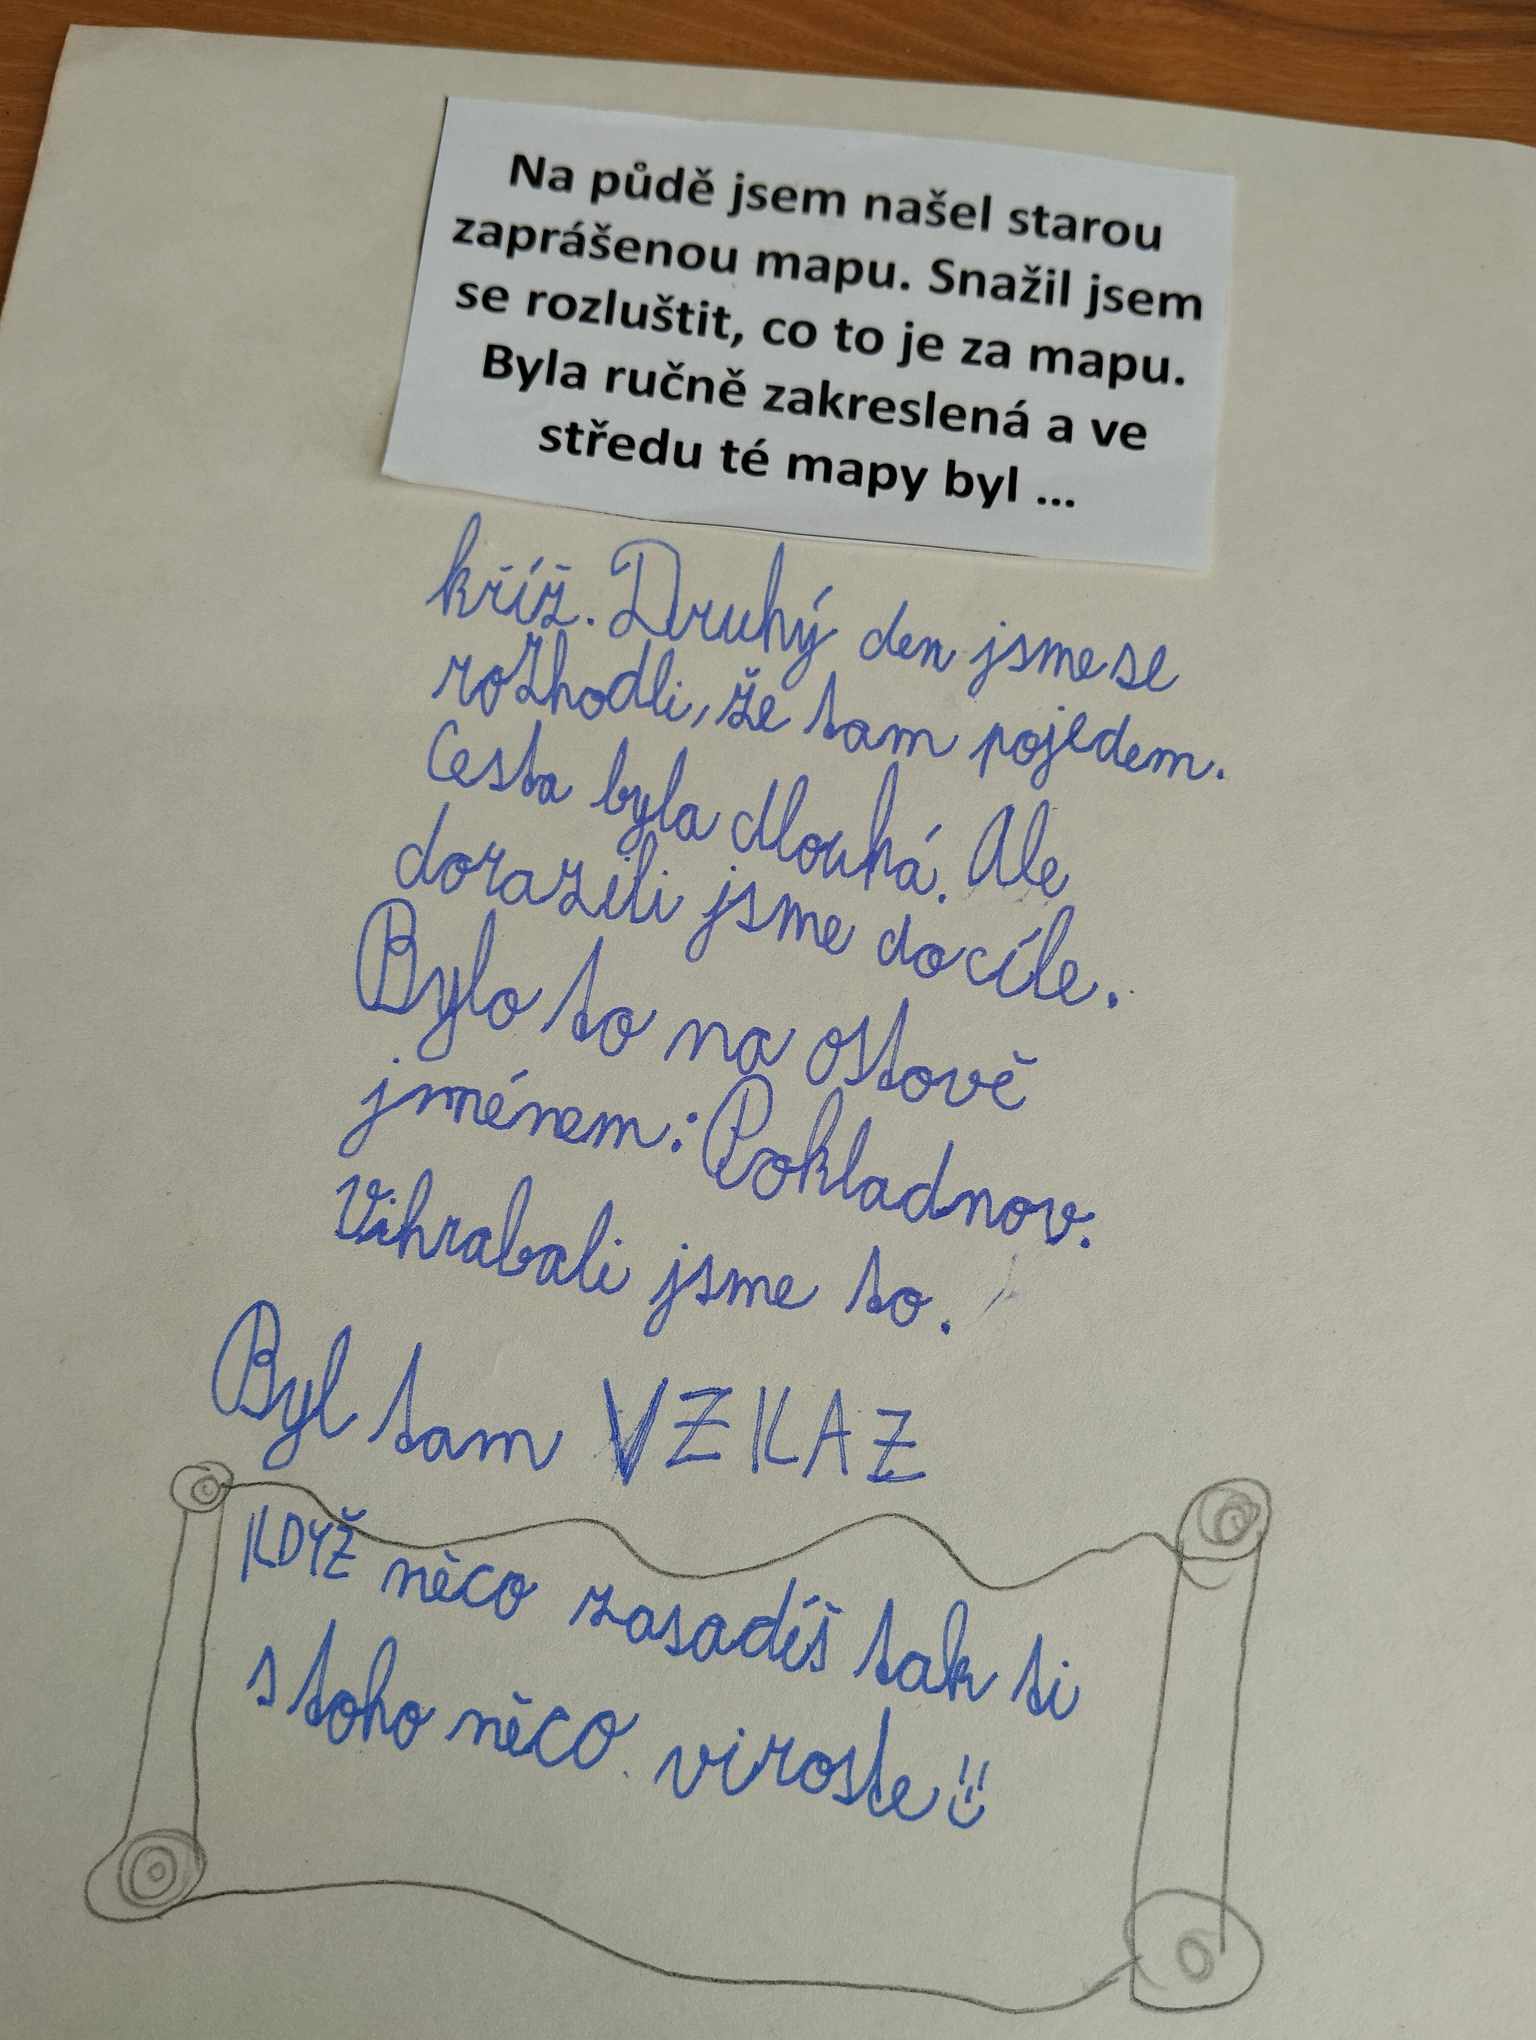 Na půdě jsem našel starou
zaprášenou mapu. Snažil jsem
se rozluštit, co to je za mapu.
Byla ručně zakreslená a ve
středu té mapy byl ...
kříž. Druhý den jsme se
rozhodli, že tam pojedem.
Cesta byla dlouhá. Ale
dorazili jsme do cíle.
Bylo to na ostově
jménem: Pokladnov.
Vihrabali jsme to.
Byl tam VZKAZ
KDYŽ něco zasadíš tak ti
s toho něco viroste